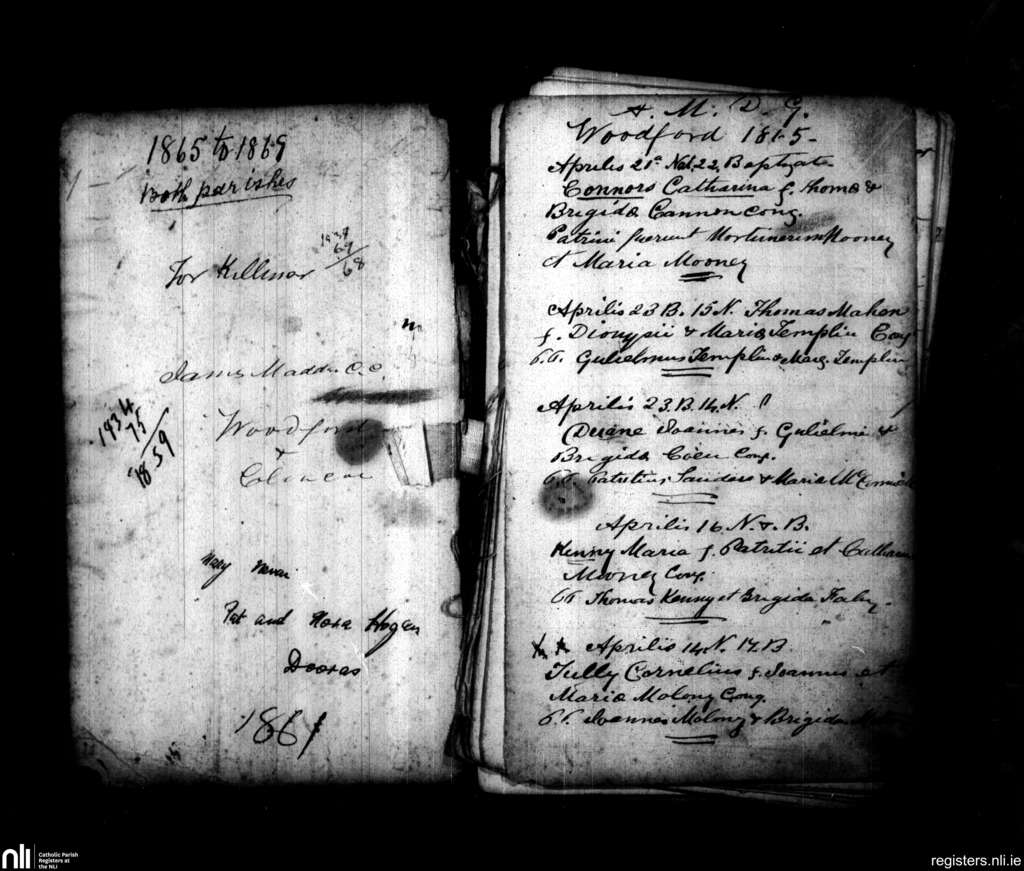 1865 to 1869
Both parishes
For Killmor
1937
69
68
James Madden C.C.
1934
75
1859
Woodford
&
Mary
Pat and Nora Hogan
Dooras
1861
15
A. M. D. G.
Woodford 1865-
Aprilis 21a Nat. 22. Baptizata
Connors Catharina f. Thomæ &
Brigidæ Cannon Conj.
Patrini fuerunt Mortimerim Mooney
et Maria Mooney
Aprilis 23 B. 15 N. Thomas Mahon
f. Dionysii & Maria Templin Conj
P.P. Gulielmus Templin & Marg. Templin
Aprilis 23. B. 14. N.
Duane Joannes f. Gulielmi &
Brigida Coen Conj.
P.P. Patritius Sanders & Maria
Aprilis 16 N. & B.
Kenny Maria f. Patritii et Catharin
Mooney Conj.
PP Thomas Kenny et Brigida Fahy.
Aprilis 14. N. 17. B
Tully Cornelius f. Joannis et
Maria Molony Conj.
P.P. Joannes Molony & Brigida
nli
Catholic Parish
Registers at
the NLI
registers.nli.ie